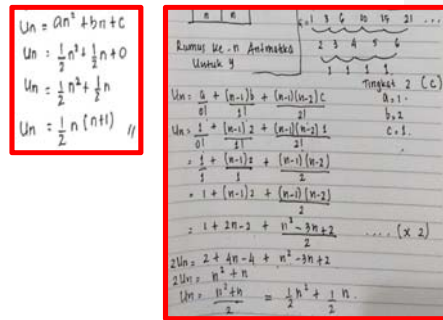 Un = an² + bn + c
Un = 1/2 n² + 1/2 n + 0
Un = 1/2 n² + 1/2 n
Un = 1/2 n (n+1) //
n n
Rumus ke-n Aritmatika
Untuk y
1 3 6 10 15 21 ...
2 3 4 5 6
1 1 1 1
Tingkat 2 (c)
a = 1
b = 2
c = 1
Un = a/0! + (n-1)b/1! + (n-1)(n-2)c/2!
Un = 1/0! + (n-1)2/1! + (n-1)(n-2)1/2!
= 1/1 + (n-1)2/1 + (n-1)(n-2)/2
= 1 + (n-1)2 + (n-1)(n-2)/2
= 1 + 2n - 2 + n² - 3n + 2/2 .... (x 2)
2Un = 2 + 4n - 4 + n² - 3n + 2
2Un = n² + n
Un = n² + n/2 = 1/2 n² + 1/2 n.